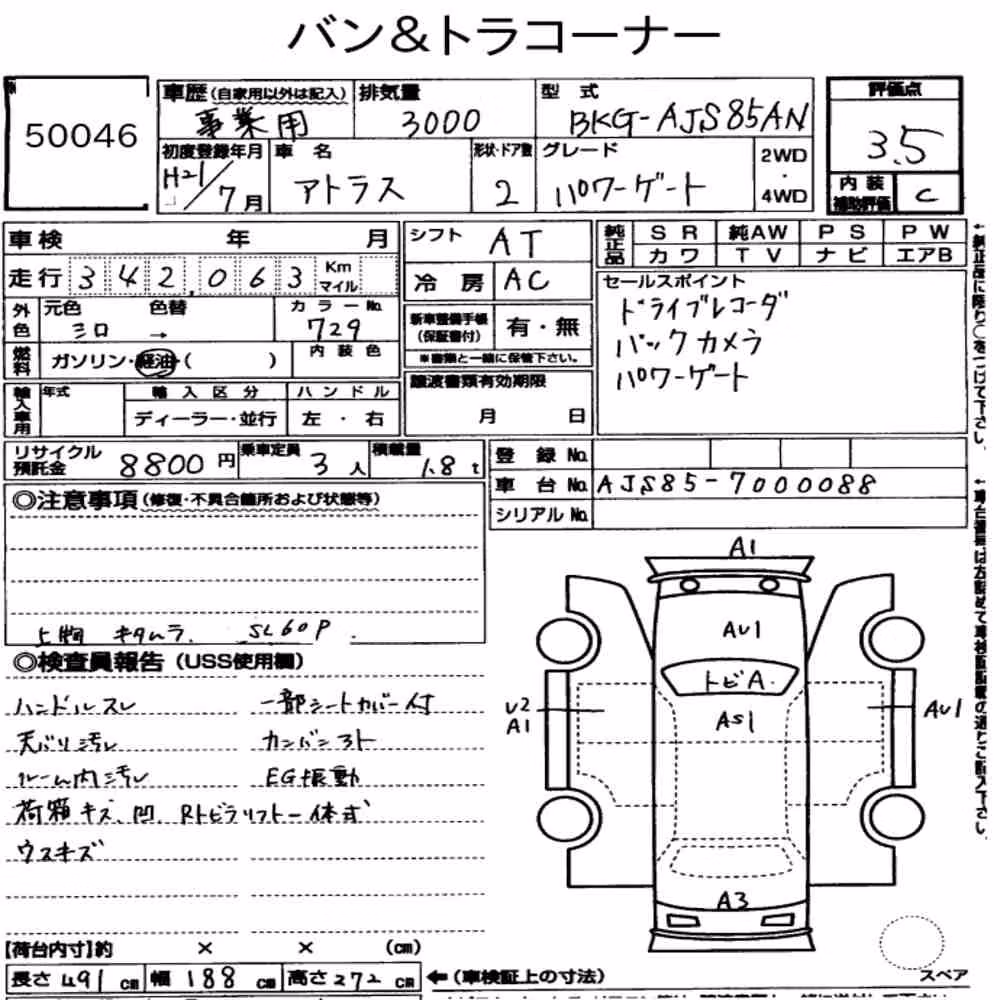 バン&トラコーナー
50046
車歴(自家用以外は記入) 事業用
排気量 3000
型式 BKG-AJS85AN
評価点 3.5
初度登録年月 H21/7月
車名 アトラス
形状・ドア数 2
グレード パワーゲート
2WD・4WD
内装補助評価 C
車検 年 月
シフト AT
純正品 SR 純AW PS PW
カワ TV ナビ エアB
走行 342,063 Km マイル
冷房 AC
セールスポイント
ドライブレコーダ
バックカメラ
パワーゲート
外色 元色 シロ → 色替
カラーNo. 729
新車整備手帳(保証書付) 有・無
※書類と一緒に保管下さい。
燃料 ガソリン・軽油( )
内装色
譲渡書類有効期限 月 日
輸入車用 年式
輸入区分 ディーラー・並行
ハンドル 左・右
リサイクル預託金 8800円
乗車定員 3人
積載量 1.8t
登録No.
車台No. AJS85-7000088
シリアルNo.
◎注意事項(修復・不具合箇所および状態等)
上物 キタムラ. SL60P.
◎検査員報告(USS使用欄)
ハンドルスレ 一部シートカバー付
天バリ汚レ カンバンアト
ルーム内汚レ EG振動
荷箱キズ、凹、Rトビラリフト一体式
ウスキズ
A1
AU1
トビA.
AS1
U2
A1
AU1
A3
スペア
【荷台内寸】約 × × (cm)
長さ 491cm 幅 188cm 高さ 272cm ←(車検証上の寸法)
←純正品に限り○をつけて下さい。